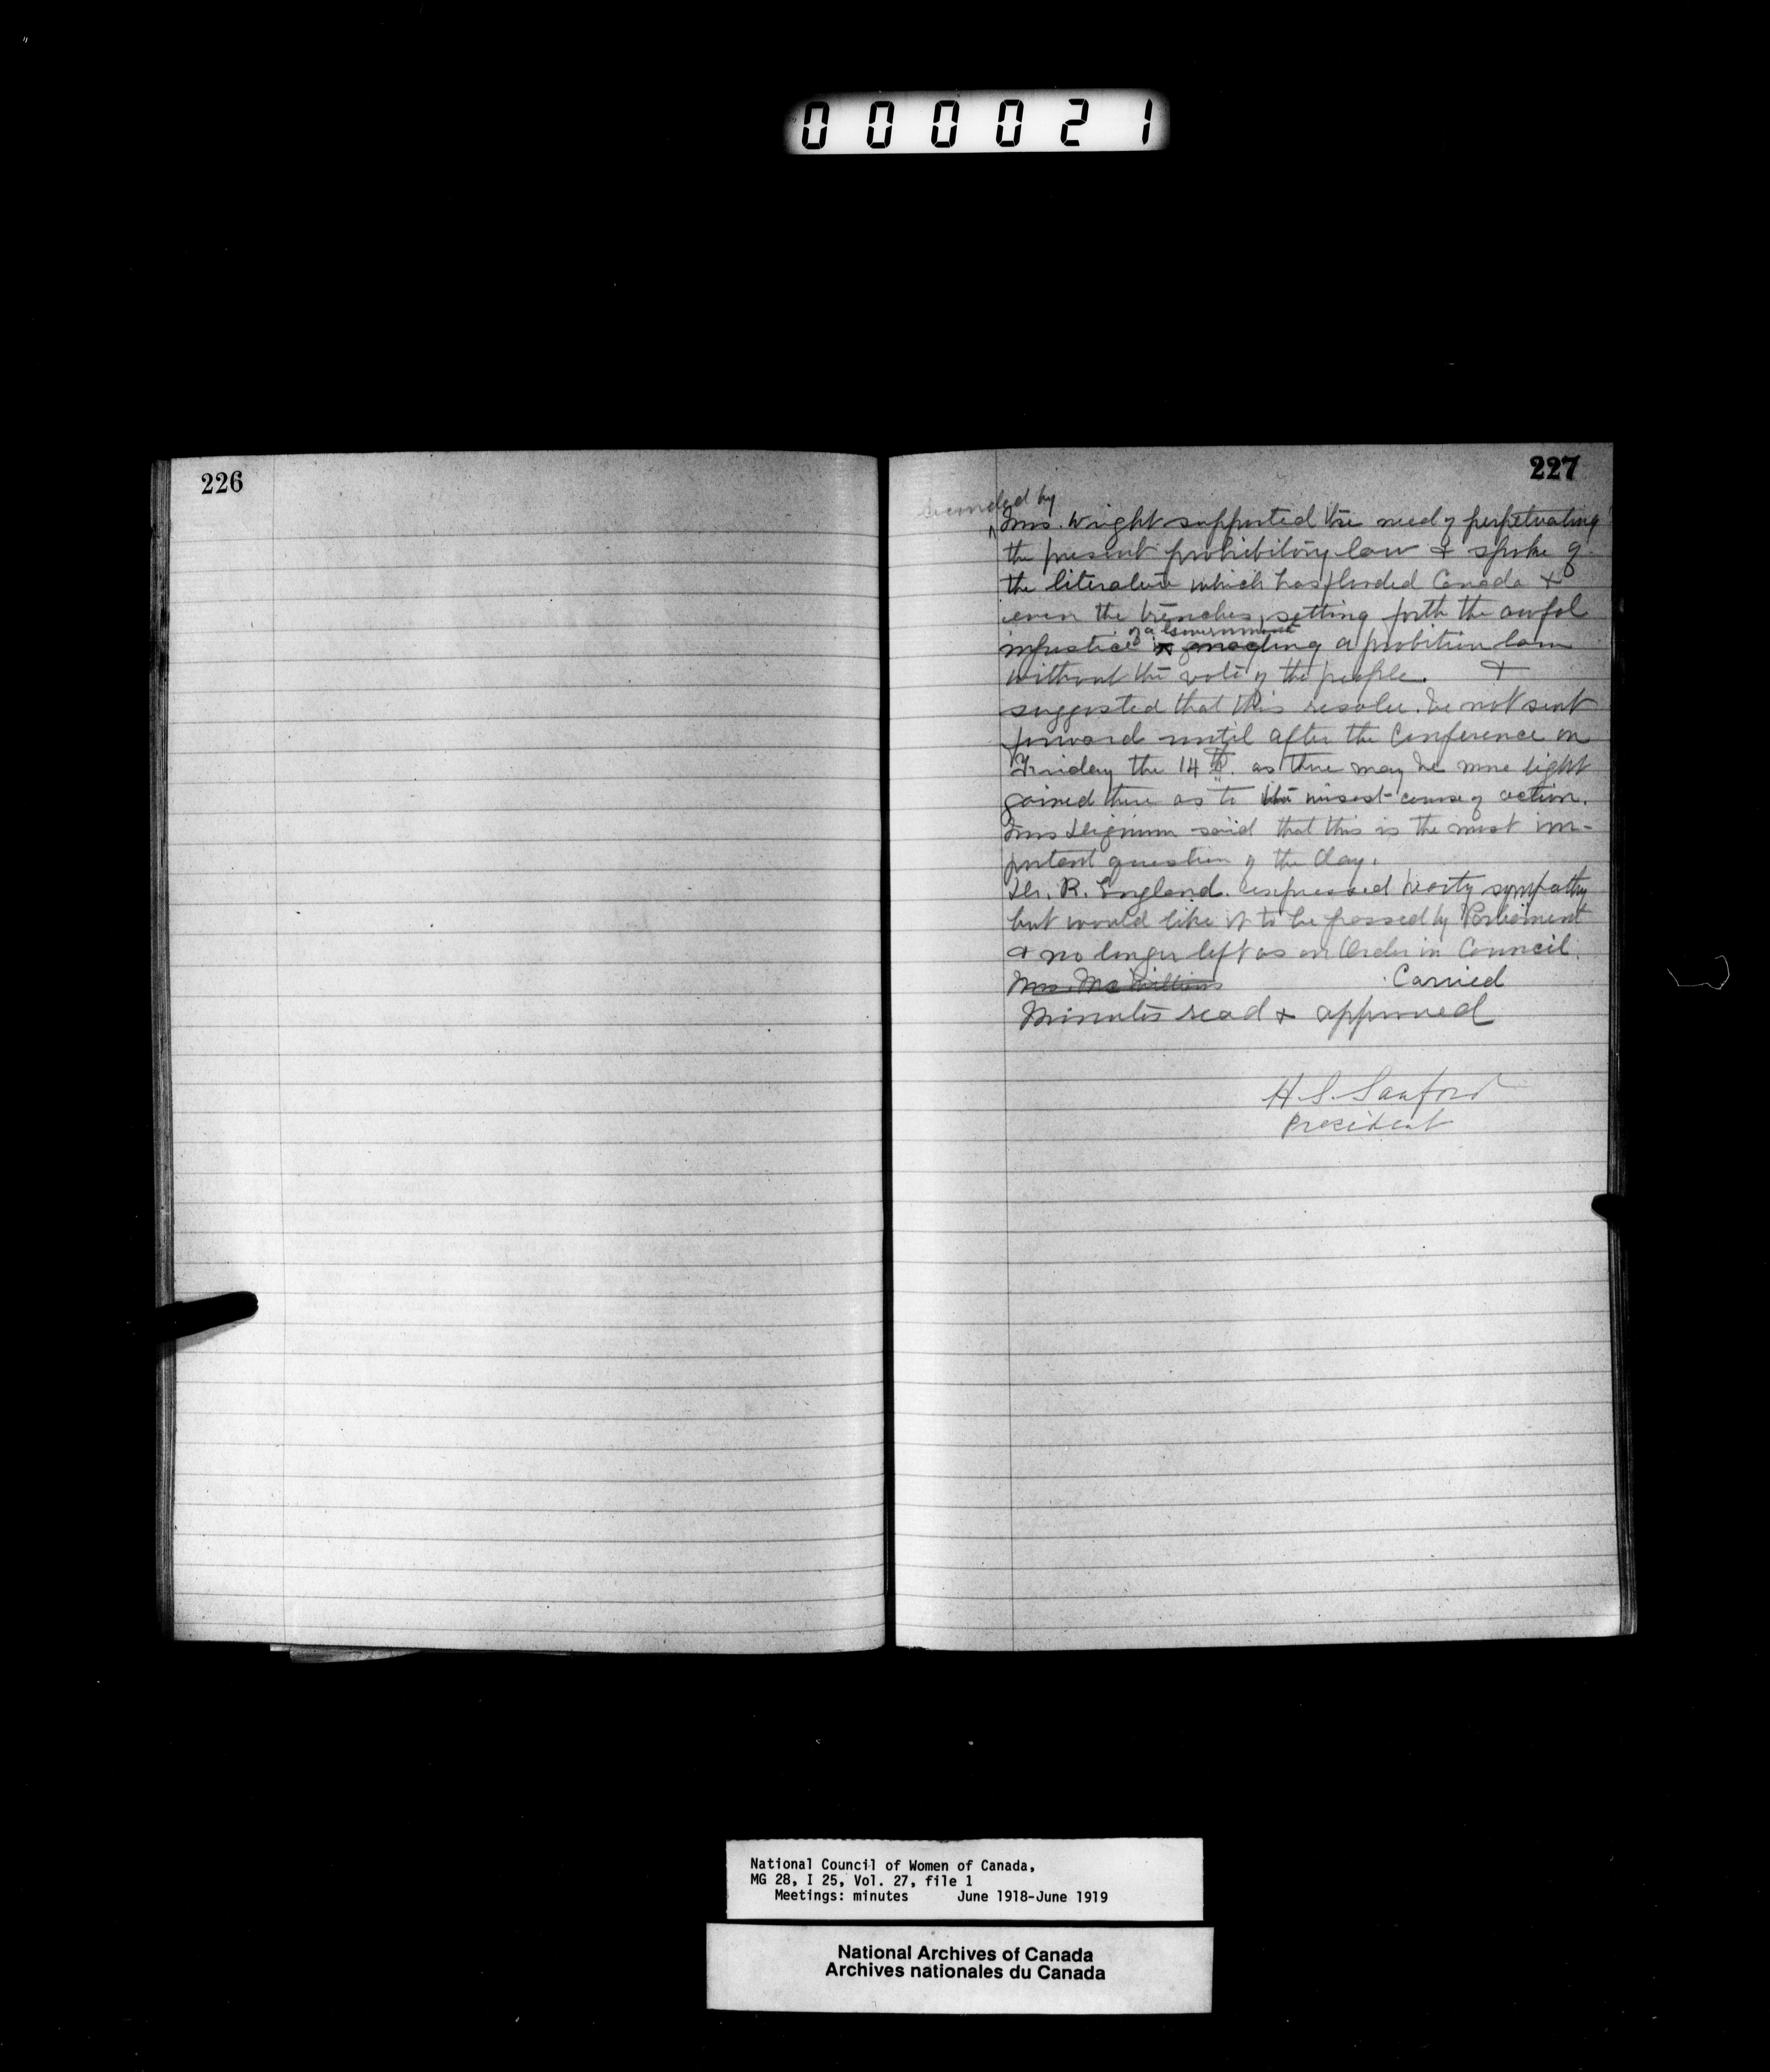 000021
226
227
seconded by
Mrs. Wright supported the need of perpetuating
the present prohibitory law & spoke of
the literature which has flooded Canada &
even the trenches, setting forth the awful
of a Government
injustice in enacting a probition law
without the vote of the people. &
suggested that this resolu. be not sent
forward until after the Conference on
Friday the 14th. as there may be more light
gained there as to the wisest course of action.
Mrs Dignum said that this is the most im-
portant question of the day.
Dr. R. England. expressed hearty sympathy
but would like it to be passed by Parliament
& no longer left as an Order in Council.
Mrs. Carried
Minutes read & approved
H. S. Sanford
President
National Council of Women of Canada,
MG 28, I 25, Vol. 27, file 1
Meetings: minutes June 1918-June 1919
National Archives of Canada
Archives nationales du Canada